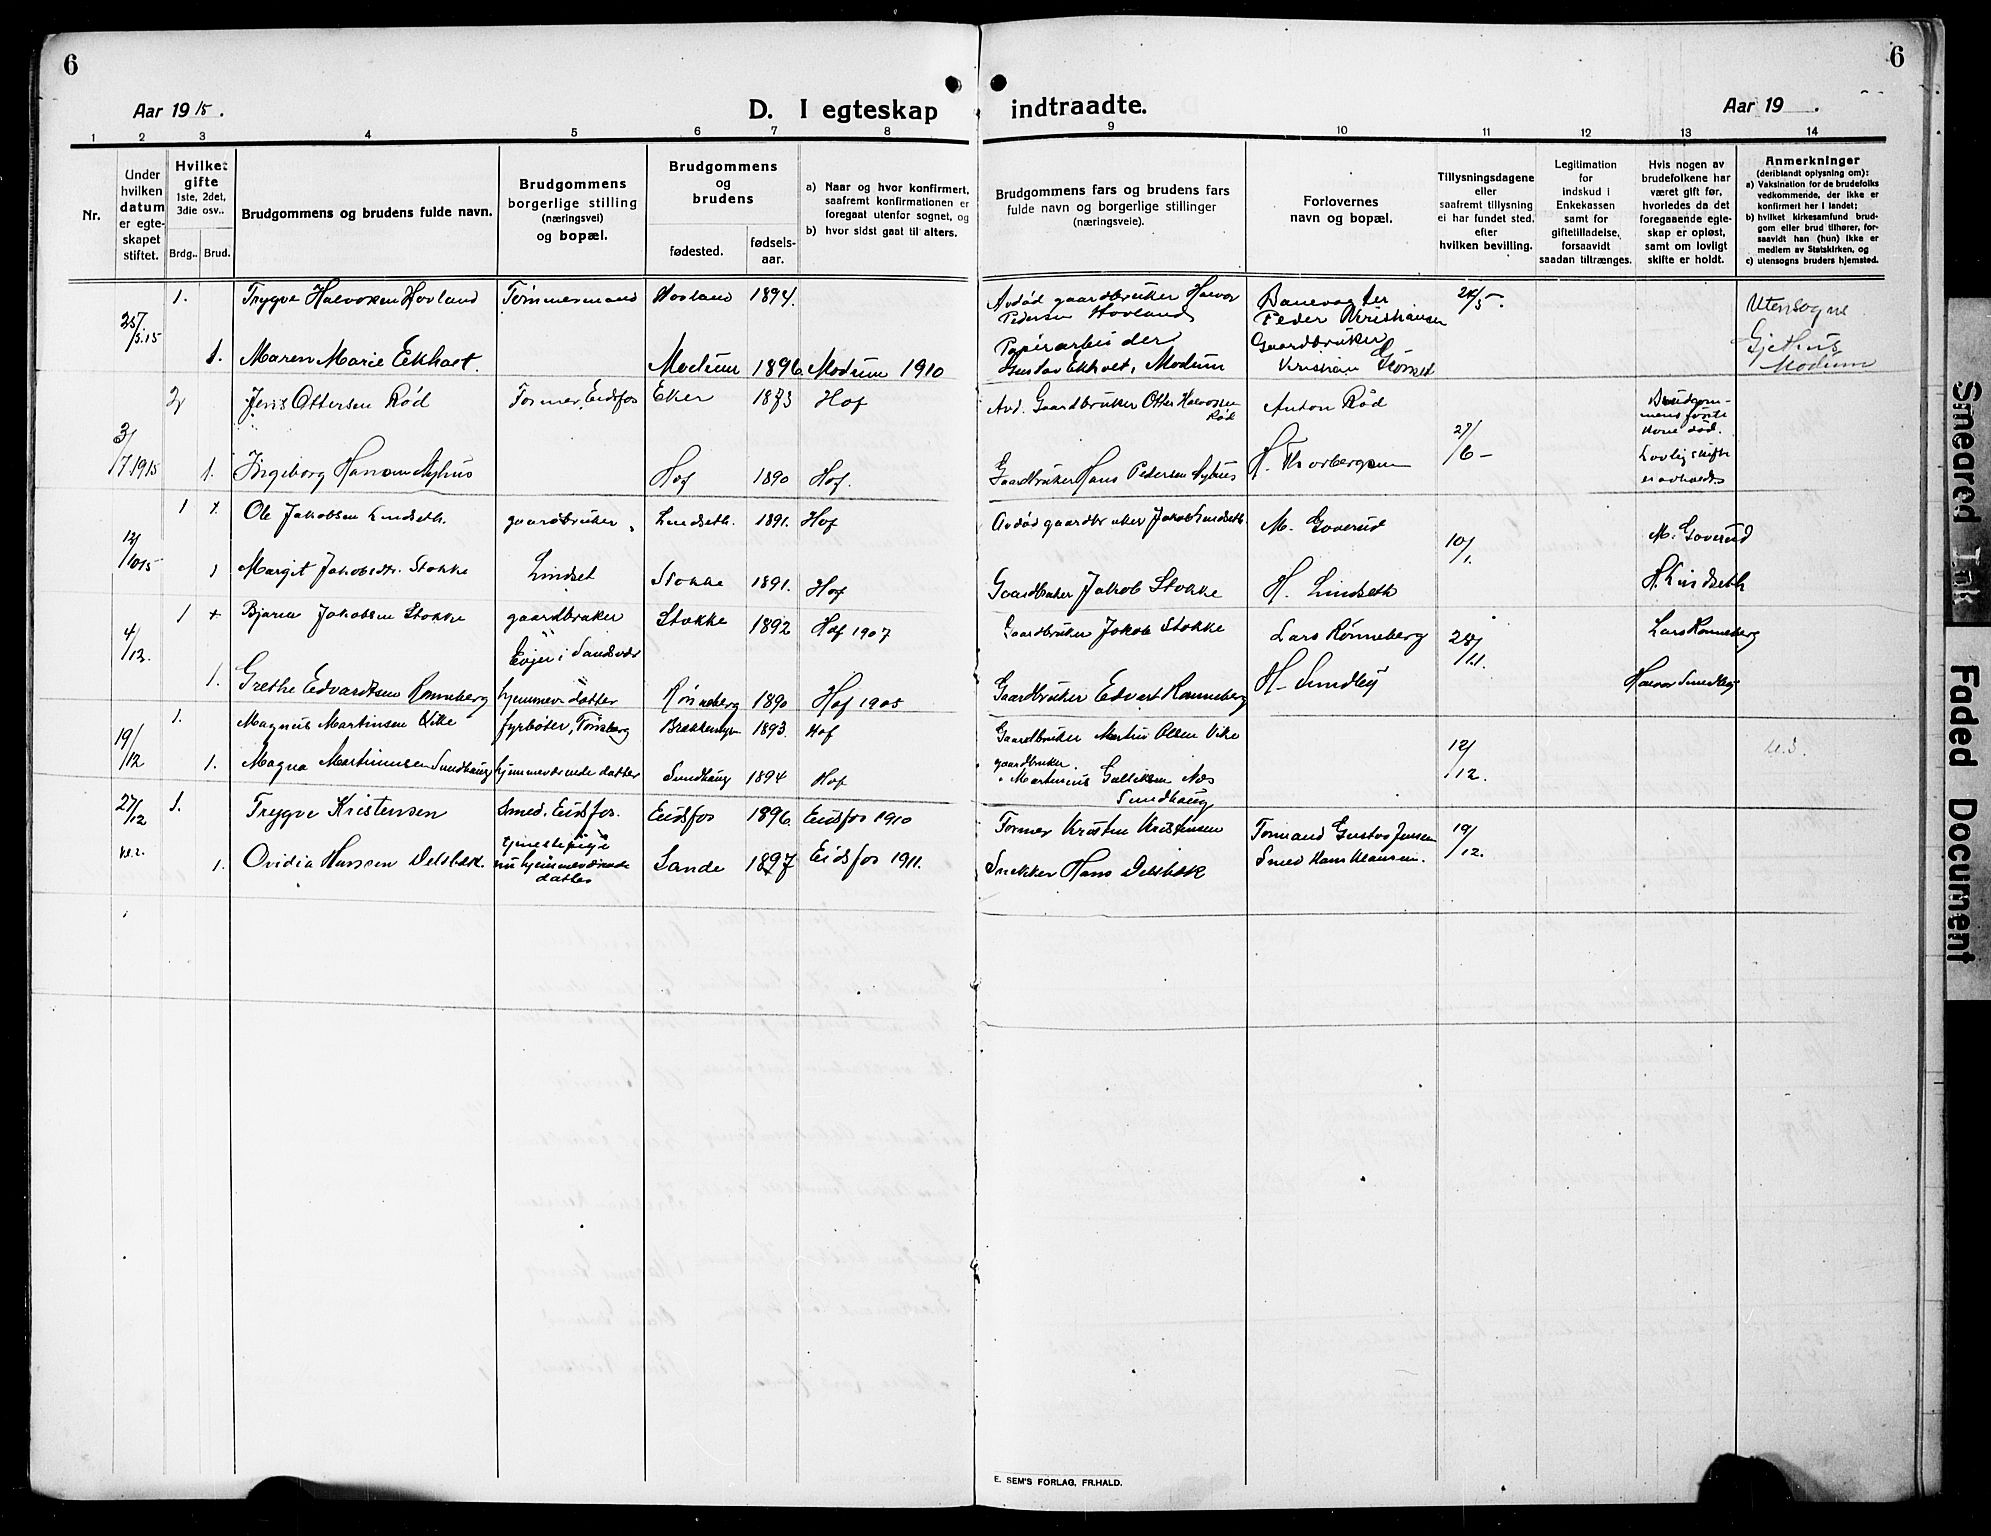 6
6
Aar 19 15.
D. I egteskap indtraadte.
Aar 19 .
1 2 3 4 5 6 7 8 9 10 11 12 13 14
Nr.
Under
hvilken
datum
er egte-
skapet
stiftet.
Hvilket
gifte
1ste, 2det,
3die osv..
Brdg.. Brud.
Brudgommens og brudens fulde navn.
Brudgommens
borgerlige stilling
(næringsvei)
og bopæl.
Brudgommens
og
brudens
fødested.
fødsels-
aar.
a) Naar og hvor konfirmert,
saafremt konfirmationen er
foregaat utenfor sognet, og
b) hvor sidst gaat til alters.
Brudgommens fars og brudens fars
fulde navn og borgerlige stillinger
(næringsveie).
Forlovernes
navn og bopæl.
Tillysningsdagene
eller
saafremt tillysning
ei har fundet sted.
efter
hvilken bevilling.
Legitimation
for
indskud i
Enkekassen
samt for
giftetilladelse,
forsaavidt
saadan tiltrænges.
Hvis nogen av
brudefolkene har
været gift før,
hvorledes da det
foregaaende egte-
skap er opløst,
samt om lovligt
skifte er holdt.
Anmerkninger
(deriblandt oplysning om):
a) Vaksination for de brudefolks
vedkommende, der ikke er
konfirmert her i landet;
b) hvilket kirkesamfund brud-
gom eller brud tilhører, for-
saavidt han (hun) ikke er
medlem av Statskirken, og
c) utensogns bruders hjemsted.
25/5.15 1. Trygve Halvorsen Hovland Tømmermand Hovland 1894. Avdød gaardbruker Halvor Pedersen Hovland Banevogter Peder Kristiansen 24/5.
1. Maren Marie Ekholt. Modum 1896 Modum 1910 Papirarbeider Gustav Ekholt, Modum Gaardbruker Kristian Utensogns Gjethus Modum
3/7 1915 2 Jens Ottersen Rød Former, Eidsfos Eker 1873 Hof Avd. Gaardbruker Otter Halvorsen Rød Anton Rød 27/6 - Brudgom-
mens første
kone død.
Lovlig skifte
er avholdt.
1. Ingeborg Hansen Nyhus Hof 1890 Hof. Gaardbruker Hans Pedersen Nyhus H. Thorbergsen
12/10 15 1 + Ole Jakobsen Lindseth. gaardbruker, Lindseth. 1891. Hof Avdød gaardbruker Jakob Lindseth. M. Goverud 10/1. M. Goverud
1 Margit Jakobsdtr. Stokke Lindset Stokke 1891. Hof Gaardbruker Jakob Stokke H. Lindseth H. Lindseth
4/12. 1 + Bjarne Jakobsen Stokke gaardbruker Stokke 1892 Hof 1907 Gaardbruker Jakob Stokke Lars Rønneberg 28/11. Lars Rønneberg
Evjer i Sandsvær
1. Grethe Edvardtsen Rønneberg hjemmev. datter Rønneberg 1890 Hof 1905 Gaardbruker Edvart Rønneberg H. Sundby Halvor Sundby
19/12 1. Magnus Martinsen Vike fyrbøter, Tønsberg 1893. Hof Gaardbruker Martin Olsen Vike 12/12.
1. Magna Martinusen Sundhaug hjemmeværende datter Sundhaug 1894 Hof gaardbruker Martinius Sundhaug
27/12 1. Trygve Kristensen Smed. Eidsfos. Eidsfos 1896. Eidsfos 1910 Former Kristen Kristensen Formand Gustav Jensen 19/12.
1. Ovidia Hanssen Delsbæk. tjenestepige nu hjemmeværende datter Sande 1897 Eidsfos 1911. Snekker Hans Delsbæk Smed Hans Klausen.
E. SEM'S FORLAG, FR.HALD.
Smeared Ink
Faded Document